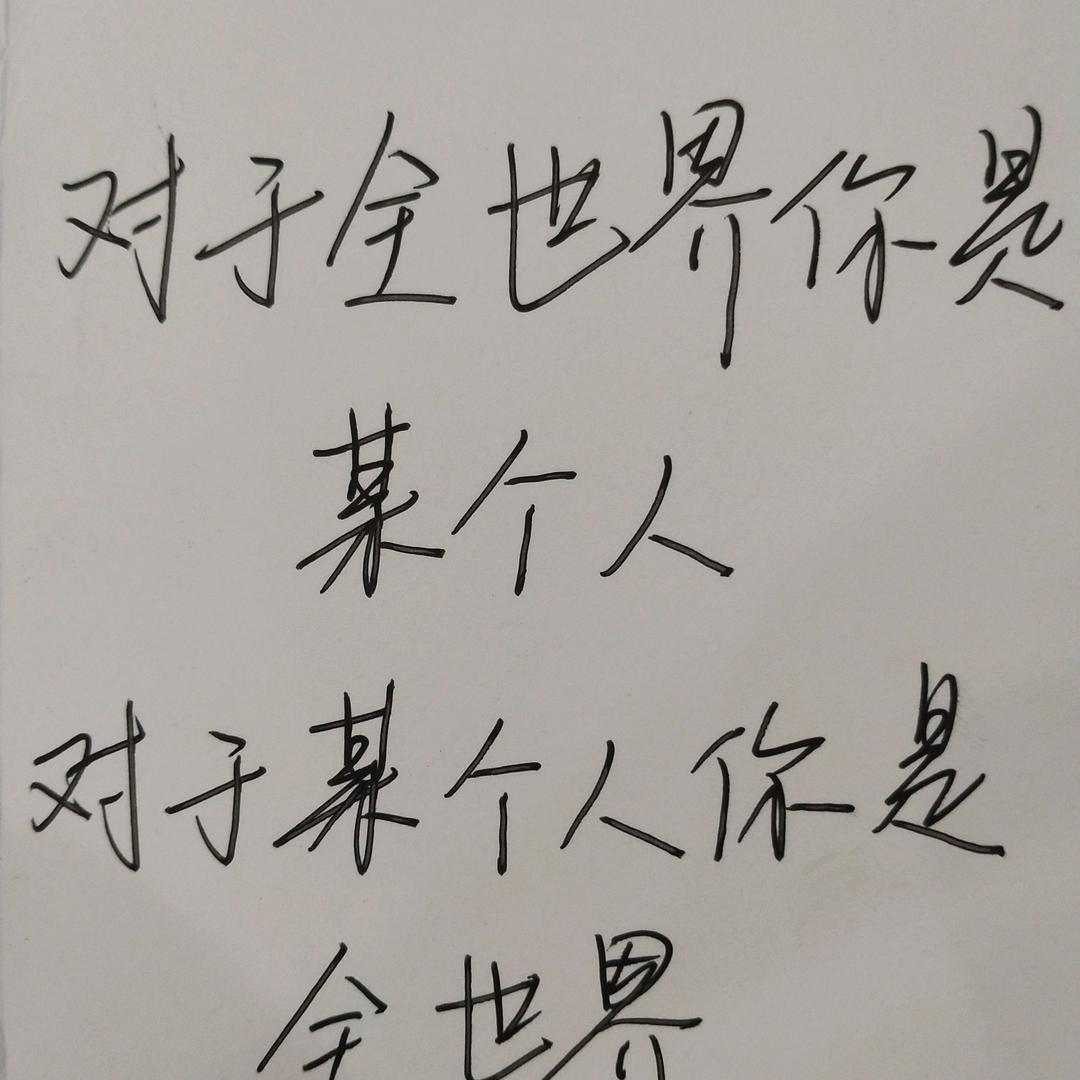 对于全世界你是
某个人
对于某个人你是
全世界